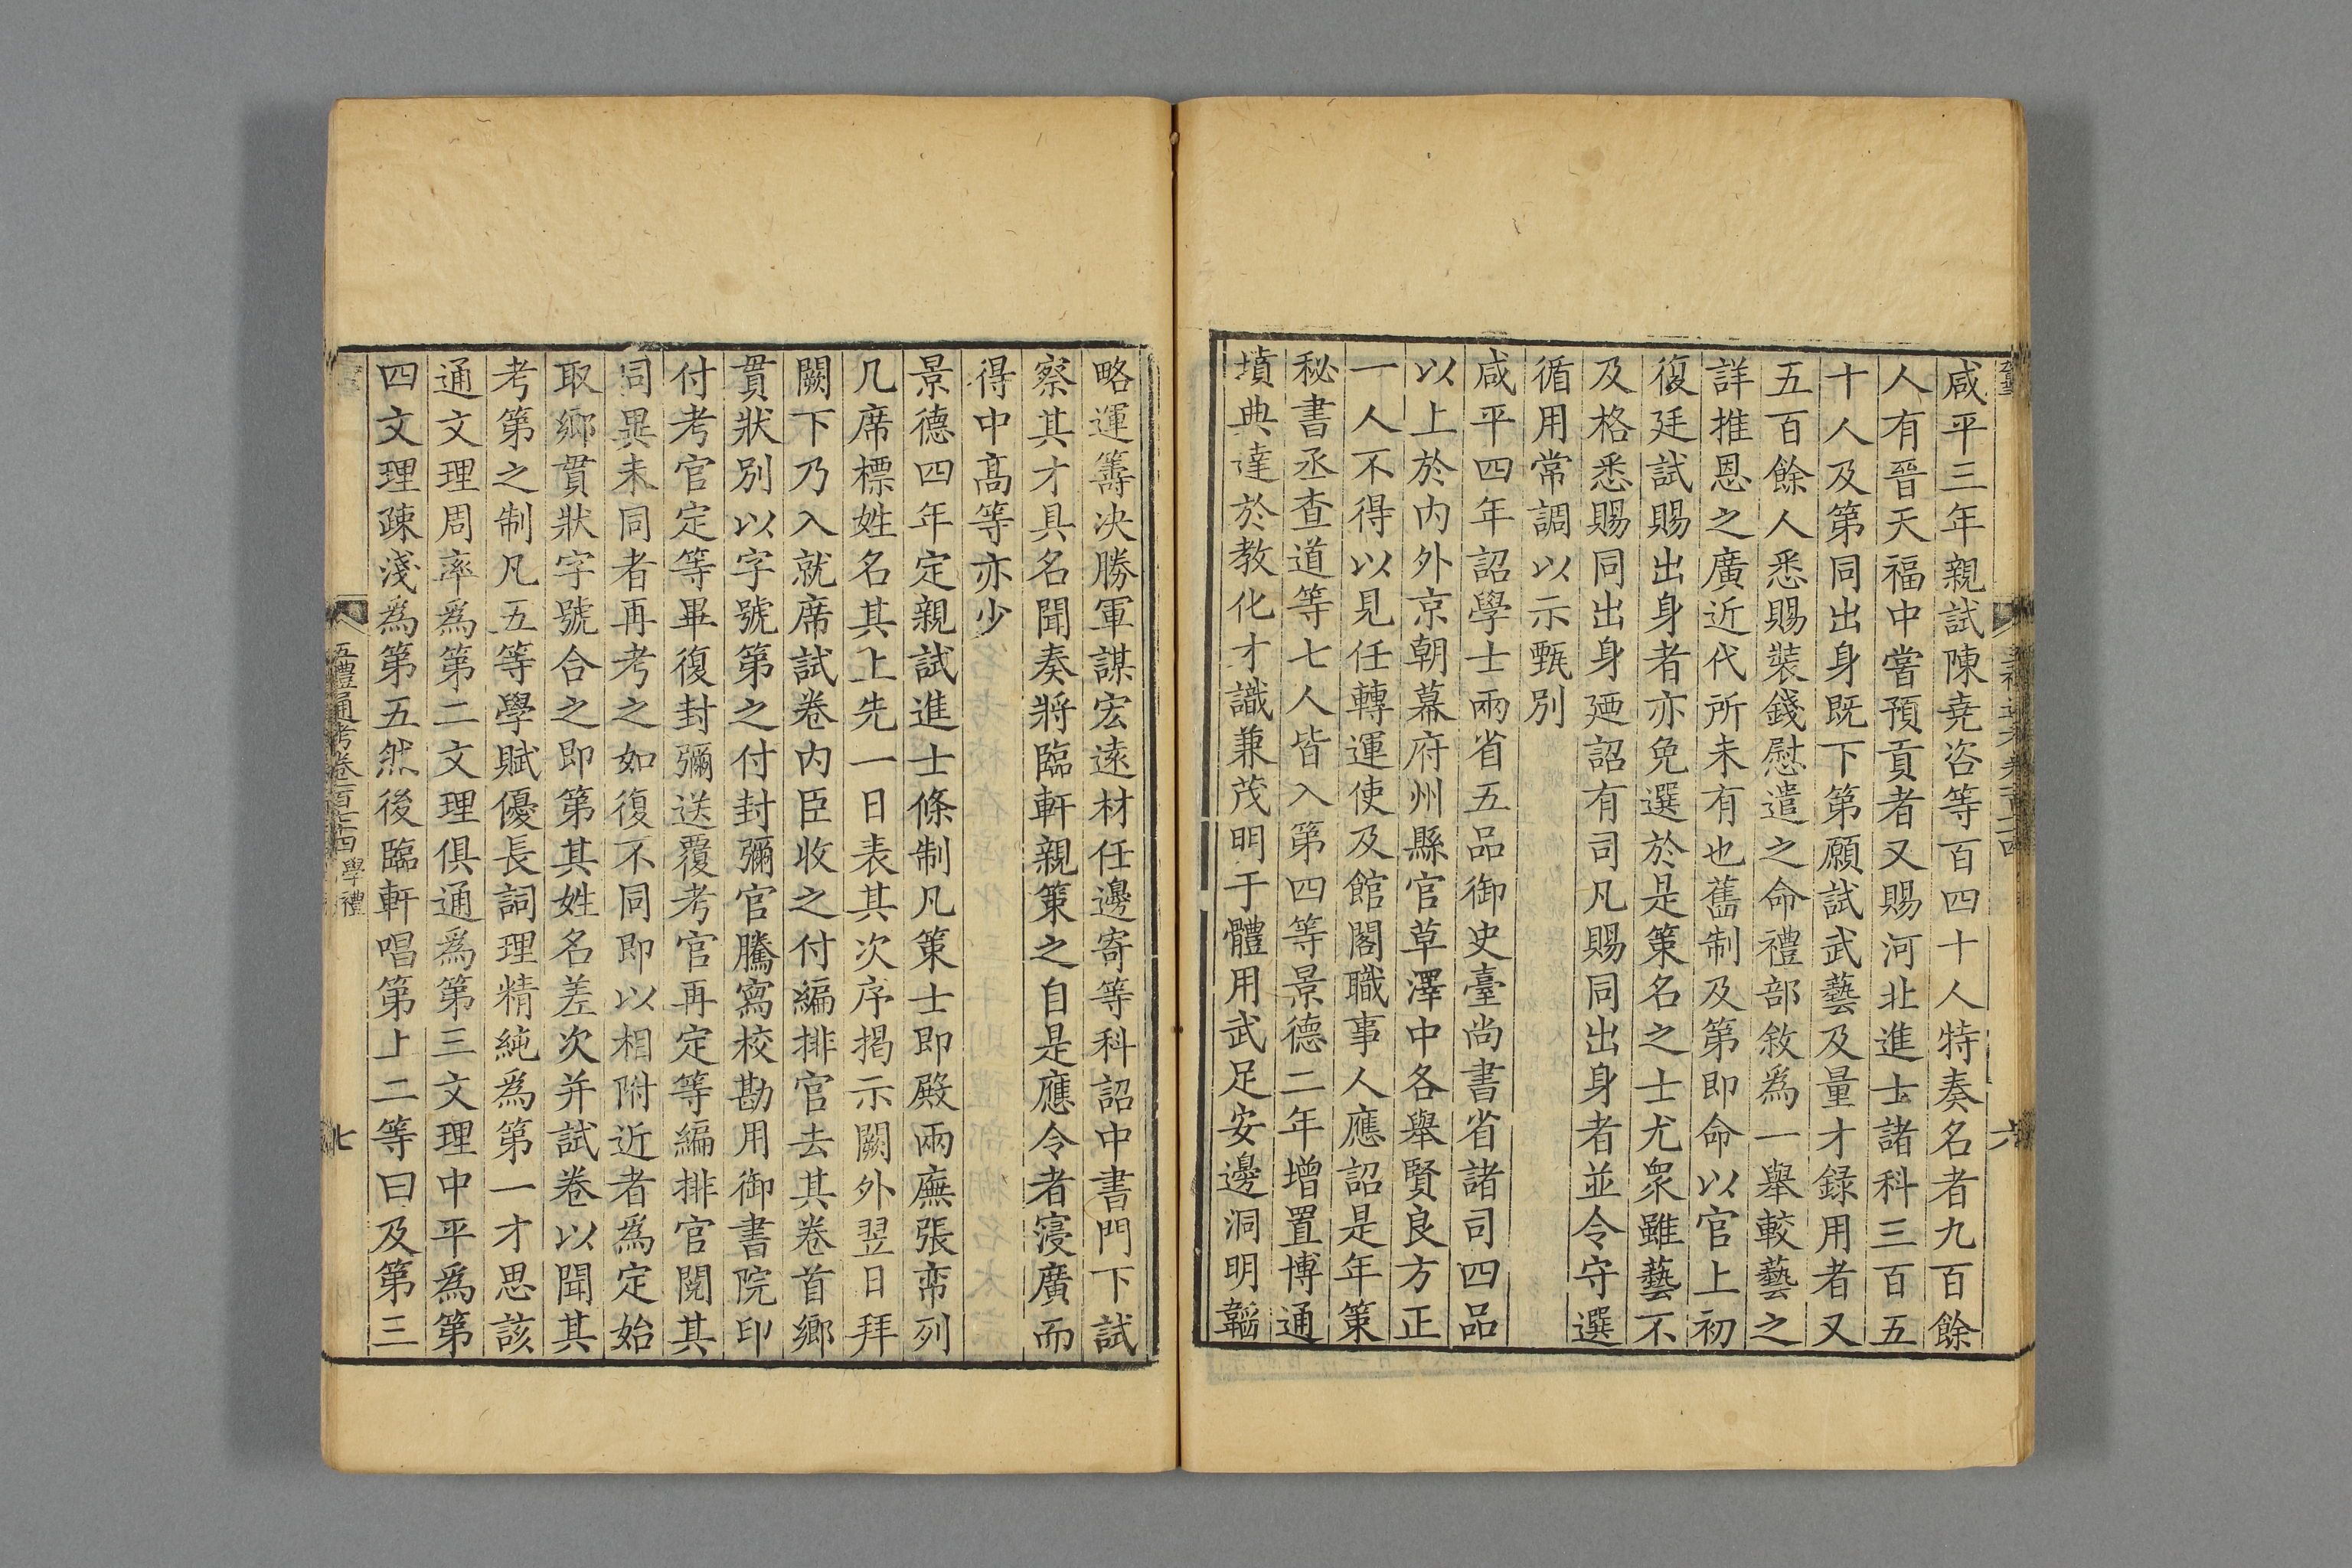 咸平三年親試陳堯咨等百四十人特奏名者九百餘
人有晉天福中嘗預貢者又賜河北進士諸科三百五
十人及第同出身既下第願試武藝及量才録用者又
五百餘人悉賜裝錢慰遣之命禮部敘爲一舉較藝之
詳推恩之廣近代所未有也舊制及第即命以官上初
復廷試賜出身者亦免選於是策名之士尤衆雖藝不
及格悉賜同出身廼詔有司凡賜同出身者並令守選
循用常調以示甄別
咸平四年詔學士兩省五品御史臺尚書省諸司四品
以上於内外京朝幕府州縣官草澤中各舉賢良方正
一人不得以見任轉運使及館閣職事人應詔是年策
秘書丞查道等七人皆入第四等景德二年增置博通
墳典達於教化才識兼茂明于體用武足安邊洞明韜
略運籌決勝軍謀宏遠材任邊寄等科詔中書門下試
察其才具名聞奏將臨軒親策之自是應令者寖廣而
得中高等亦少
景德四年定親試進士條制凡策士即殿兩廡張帟列
几席標姓名其上先一日表其次序揭示闕外翌日拜
闕下乃入就席試卷内臣收之付編排官去其卷首鄉
貫狀別以字號第之付封彌官騰寫校勘用御書院印
付考官定等畢復封彌送覆考官再定等編排官閱其
同異未同者再考之如復不同即以相附近者爲定始
取鄉貫狀字號合之即第其姓名差次并試卷以聞其
考第之制凡五等學賦優長詞理精純爲第一才思該
通文理周率爲第二文理俱通爲第三文理中平爲第
四文理疎淺爲第五然後臨軒唱第上二等曰及第三
五禮通考卷一百七十四 學禮
七